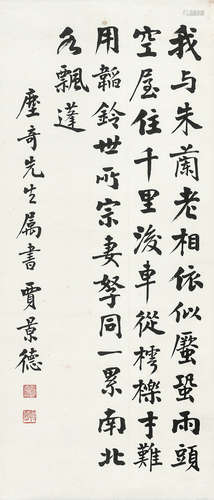 我与朱蘭老相依似蛩蛩兩頭
空屋住千里後車從樗櫟才難
用韜鈐世所宗妻孥同一累南北
各飄蓬
塵奇先生属書賈景德